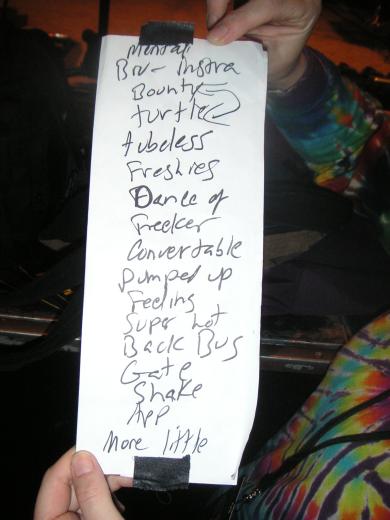 Mental
Brv- Instra
Bounty
turtle
tubeless
Freshies
Dance of
Freeker
Convertable
pumped up
Feeling
Super hot
Back Bus
Gate
Shake
App
More little